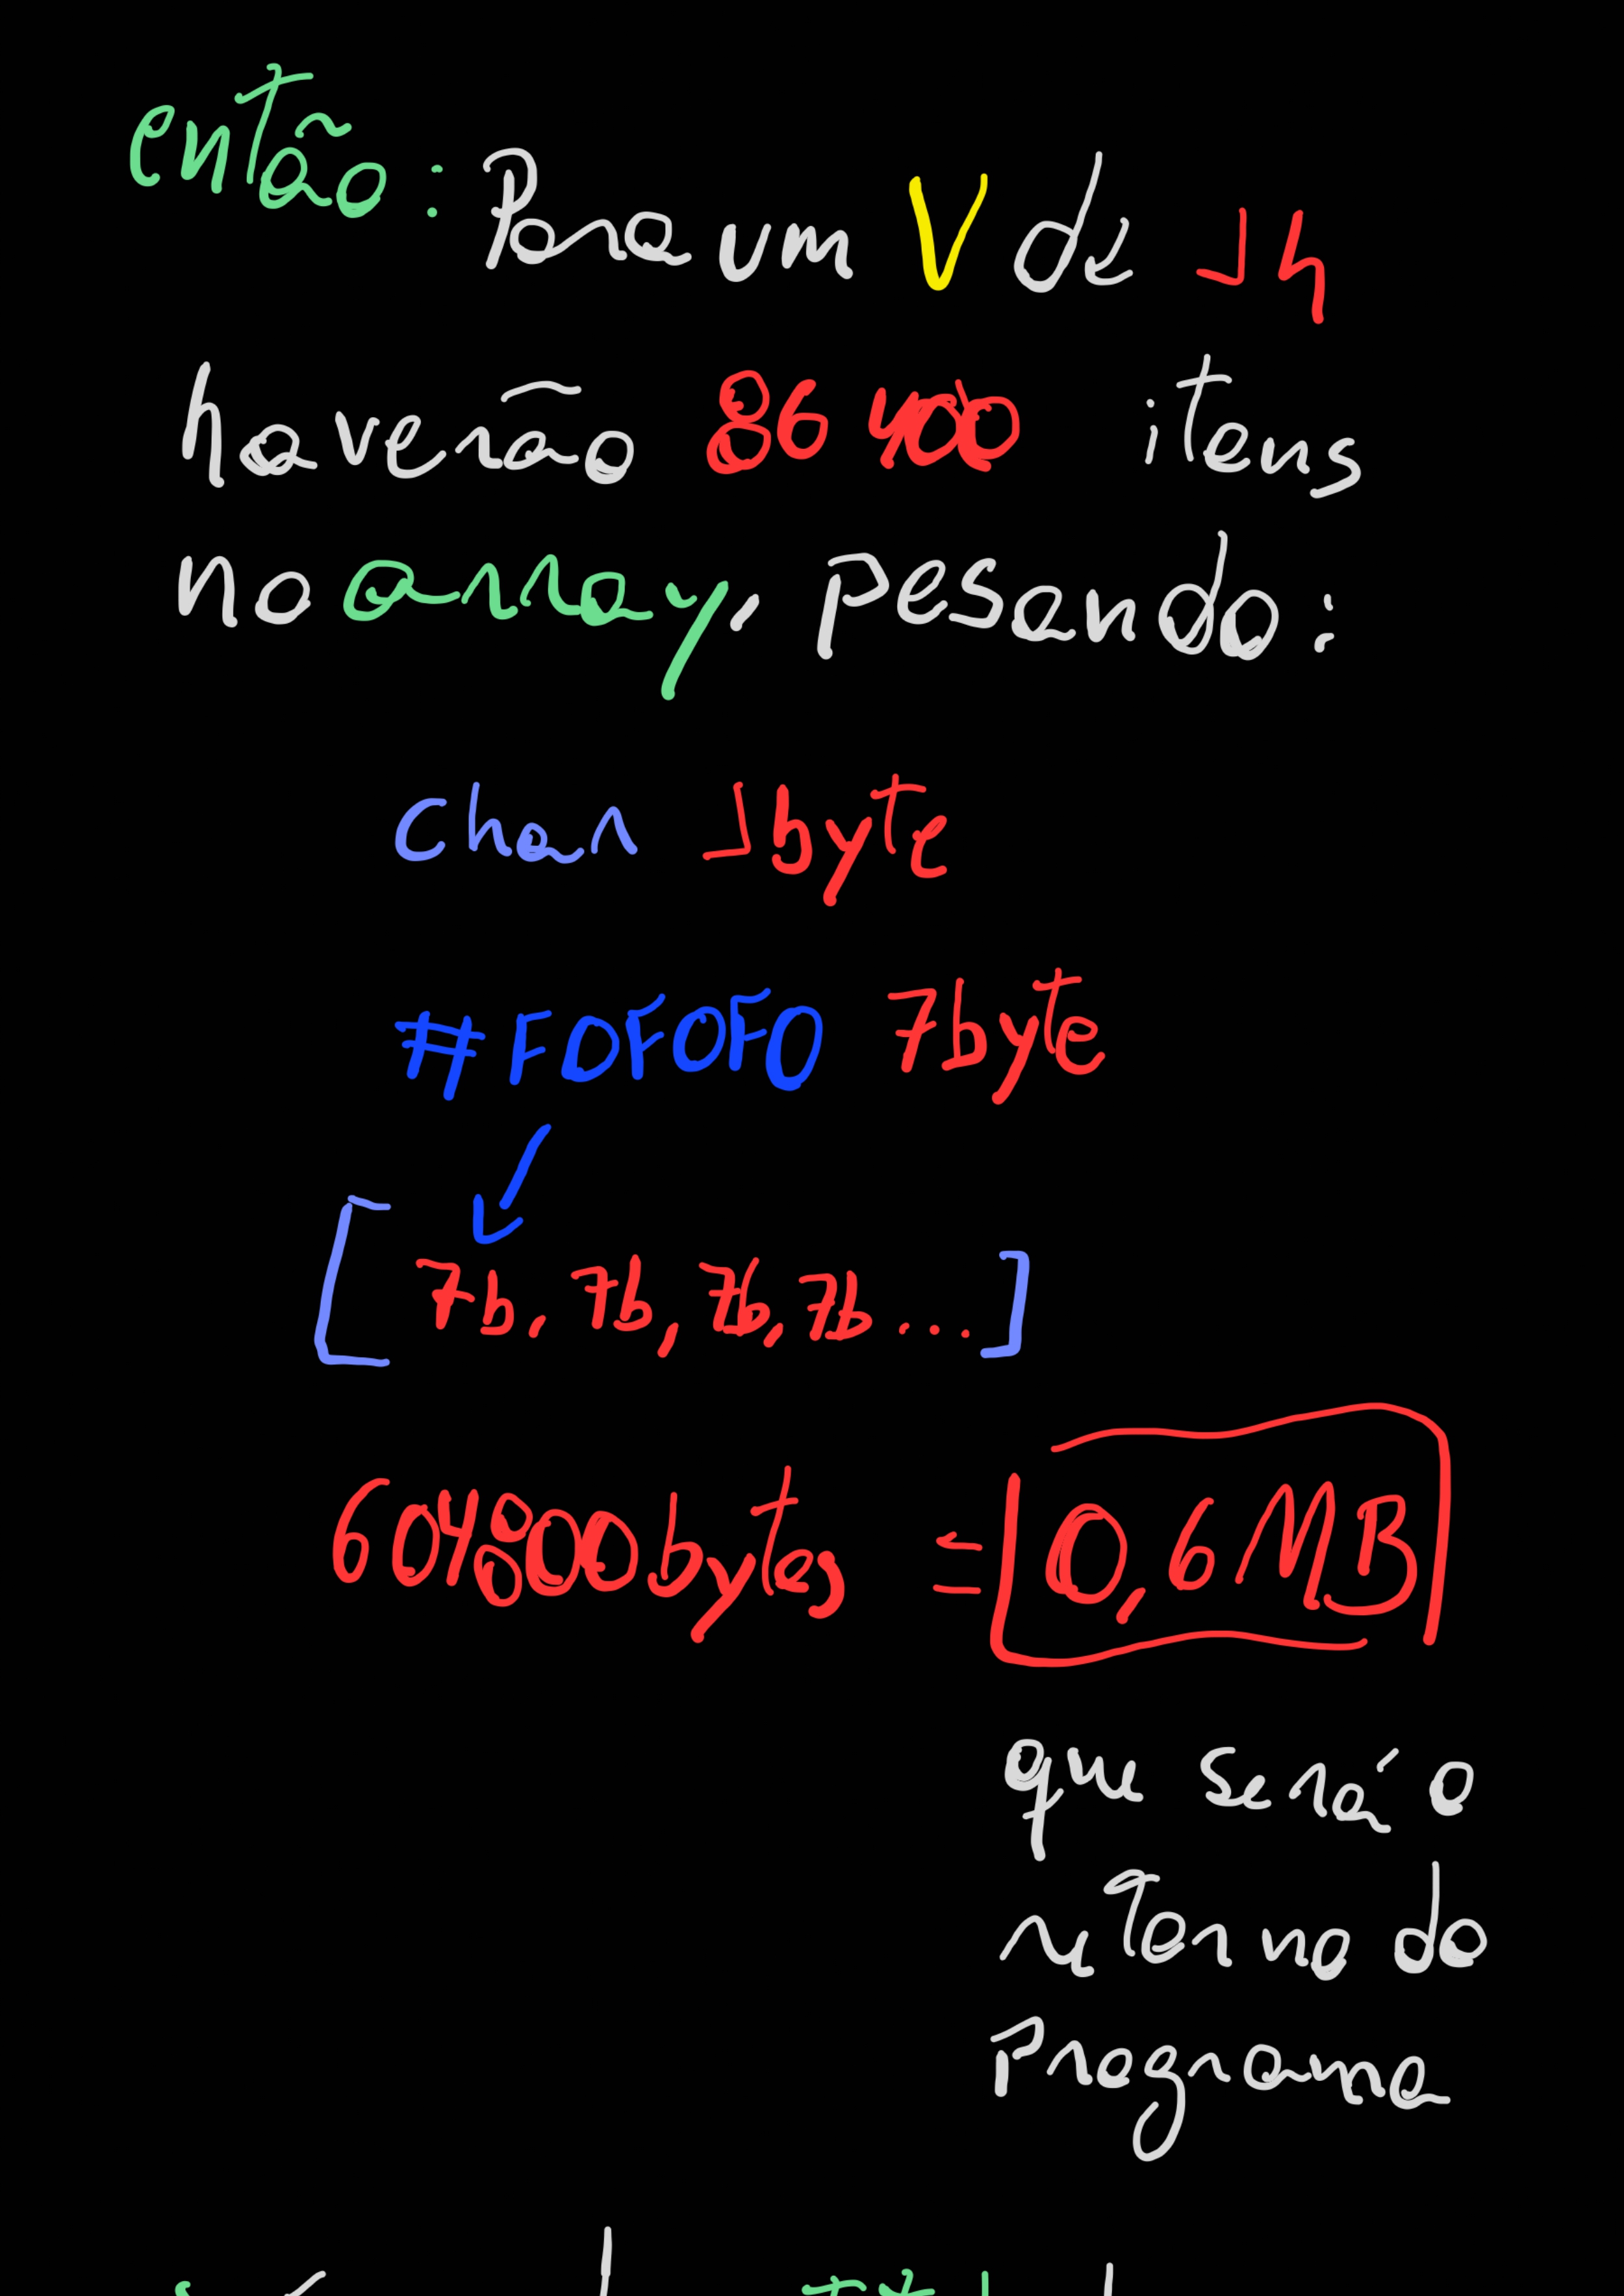 então: Para um V de 1h
haverão 86400 itens
no array, pesando:
char 1byte
#F0F0F0 7byte
[7b, 7b, 7b, 7b...]
604800bytes = 0,6MB
que será o
retorno do
programa